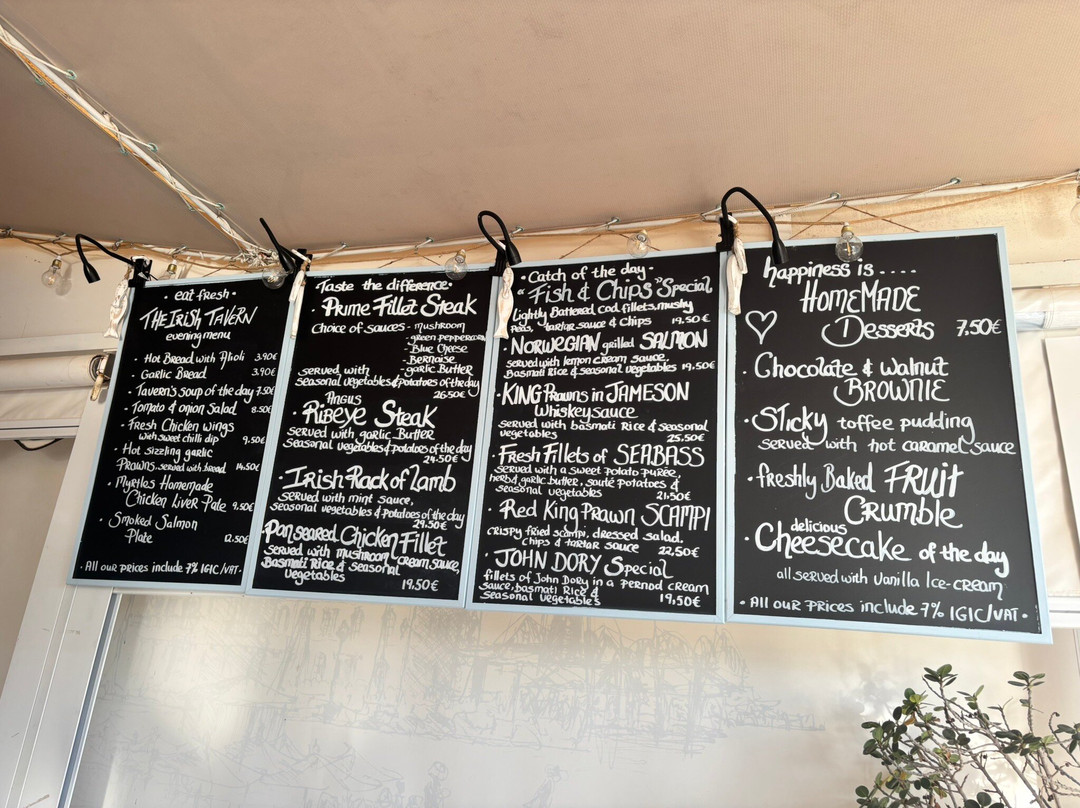 • eat fresh •
THE IRISH TAVERN
evening menu
• Hot Bread with Alioli 3.90€
• Garlic Bread 3.90€
• Tavern's soup of the day 7.50€
• Tomato & onion Salad 8.50€
• Fresh Chicken wings
with sweet chilli dip 9.50€
• Hot sizzling garlic
Prawns. served with bread 14.50€
• Myrtles Homemade
Chicken Liver Pate 9.50€
• Smoked Salmon
Plate 12.50€
• All our prices include 7% IGIC/VAT •
Taste the difference •
• Prime Fillet Steak
Choice of sauces - mushroom
- green peppercorn
- Blue Cheese
- Bernaise
- garlic Butter
served with
seasonal vegetables & potatoes of the day
26.50€
Angus
• Ribeye Steak
served with garlic Butter
seasonal vegetables & potatoes of the day
24.50€
• Irish Rack of Lamb
served with mint sauce,
seasonal vegetables & potatoes of the day
29.50€
• Pan seared Chicken Fillet
served with mushroom cream sauce,
Basmati Rice & seasonal
vegetables
19.50€
• Catch of the day •
"Fish & Chips" Special
Lightly Battered Cod fillets, mushy
Peas, tartar sauce & Chips 19.50€
• NORWEGIAN grilled SALMON
served with lemon cream sauce,
Basmati Rice & seasonal vegetables 19.50€
• KING Prawns in JAMESON
Whiskey sauce
served with basmati Rice & seasonal
vegetables 25.50€
• Fresh Fillets of SEABASS
served with a sweet potato purée,
herb & garlic butter, sauté potatoes &
seasonal vegetables 21.50€
• Red King Prawn SCAMPI
crispy fried scampi, dressed salad,
chips & tartar sauce 22.50€
• JOHN DORY Special
fillets of John Dory in a Pernod cream
sauce, basmati Rice &
seasonal vegetables 19.50€
happiness is ....
HOMEMADE
Desserts 7.50€
• Chocolate & walnut
BROWNIE
• Sticky toffee pudding
served with hot caramel sauce
• freshly Baked FRUIT
Crumble
delicious
• Cheesecake of the day
all served with Vanilla Ice-cream
• All our prices include 7% IGIC/VAT •